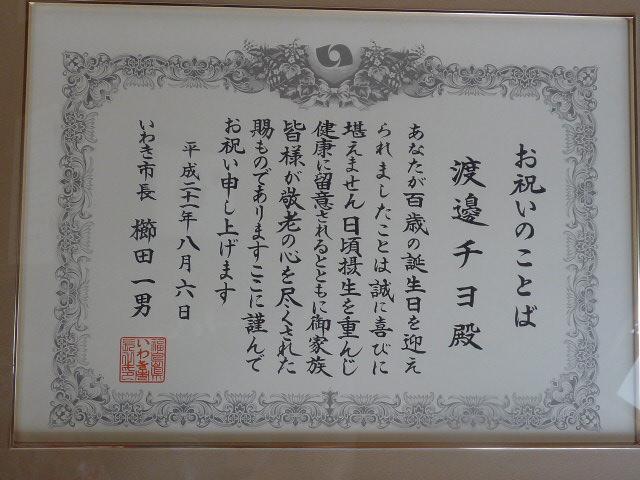 お祝いのことば
渡邉チヨ殿
あなたが百歳の誕生日を迎え
られましたことは誠に喜びに
堪えません日頃摂生を重んじ
健康に留意されるとともに御家族
皆様が敬老の心を尽くされた
賜ものでありますここに謹んで
お祝い申し上げます
平成二十一年八月六日
いわき市長 櫛田一男